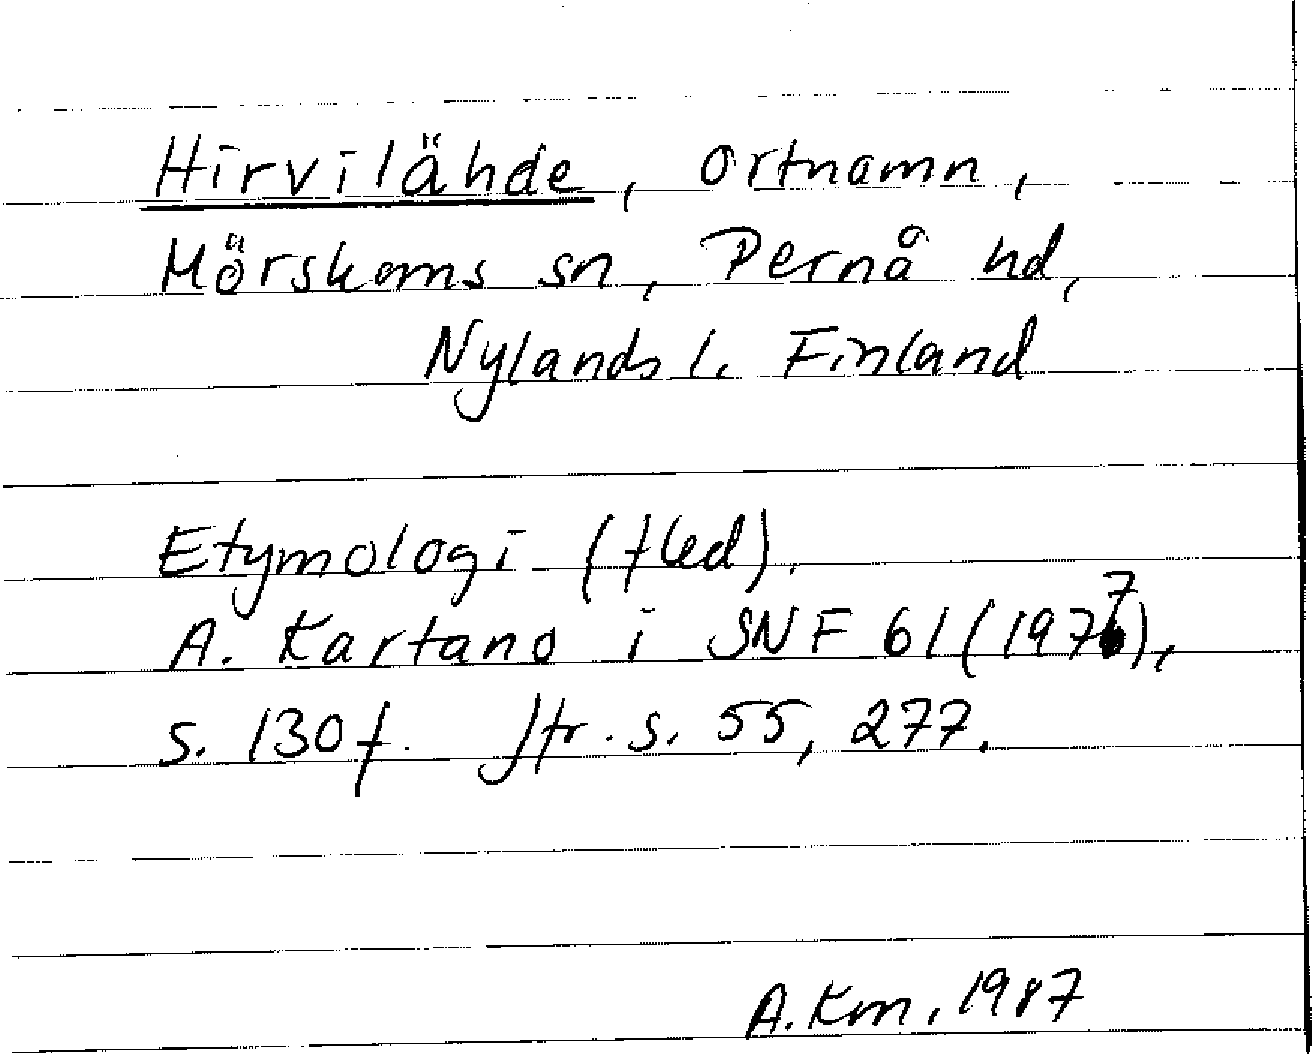 Hirvilähde, ortnamn,
Mörskoms sn, Pernå hd,
Nylands l. Finland
Etymologi (fled).
A. Kartano i SNF 61 (1977),
s. 130 f. Jfr. s. 55, 277.
A. Km, 1987